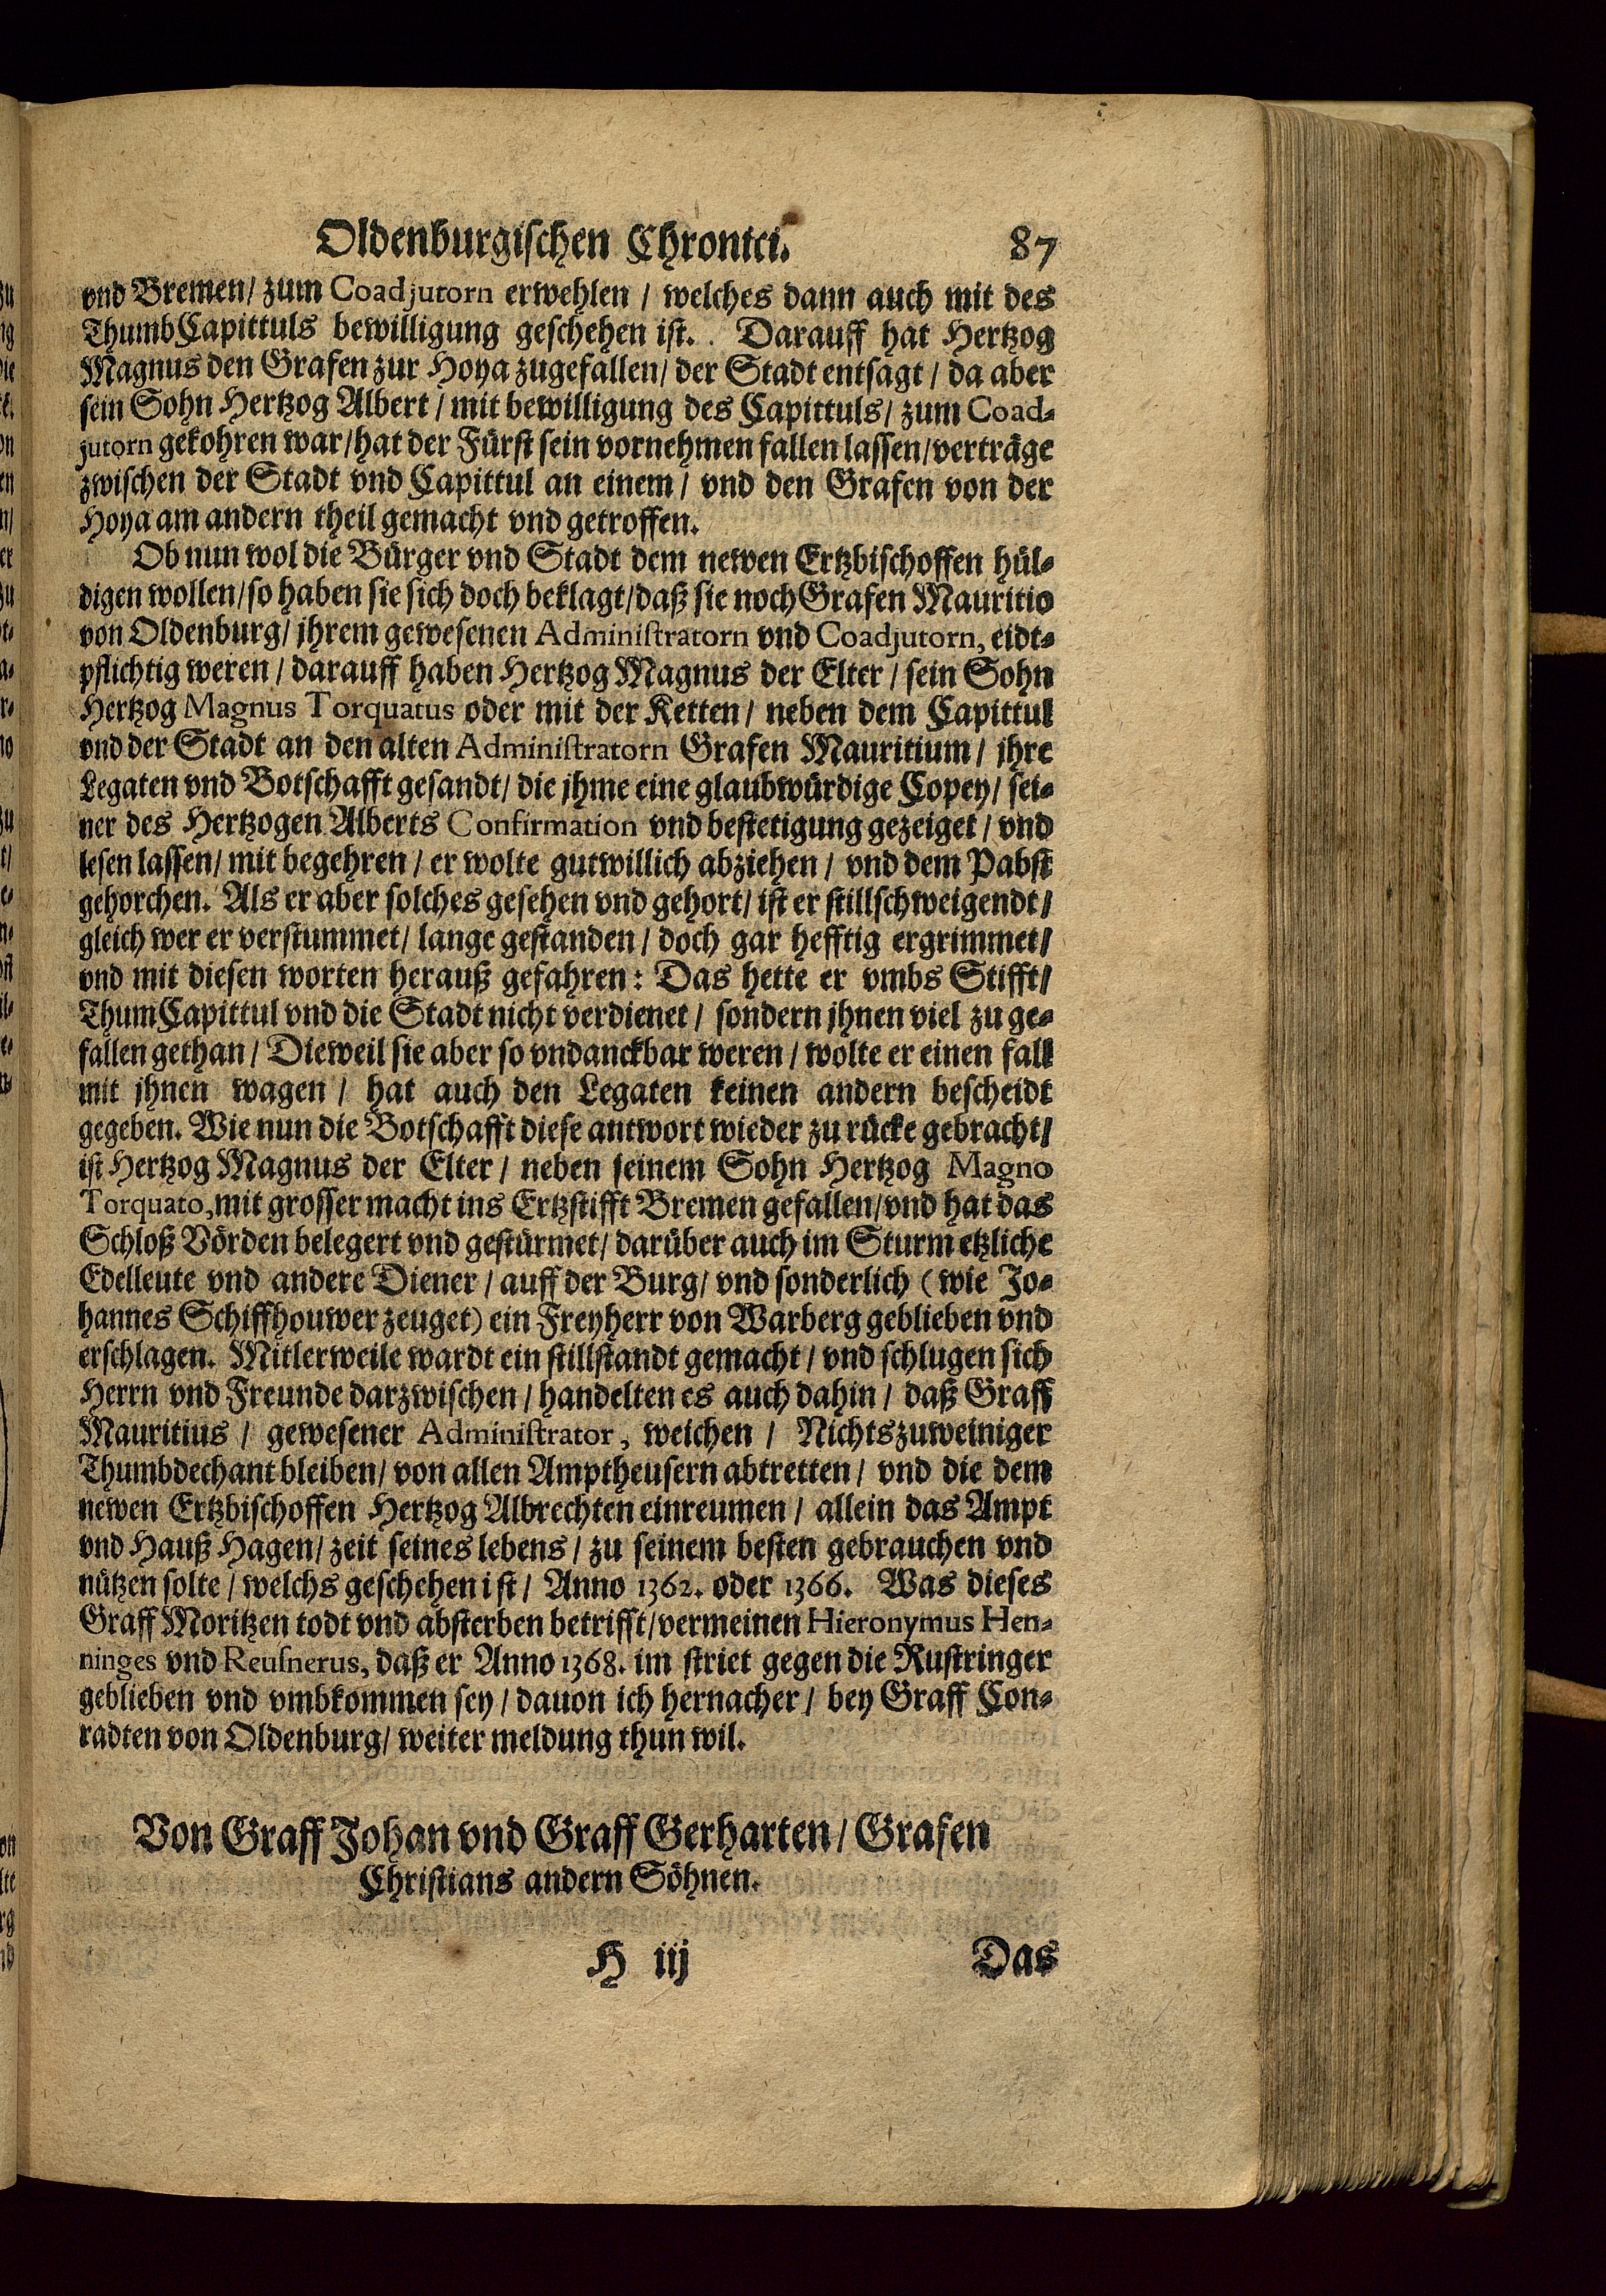 Oldenburgischen Chronici. 87
vnd Bremen/ zum Coadjutorn erwehlen / welches dann auch mit des
ThumbCapittuls bewilligung geschehen ist. Darauff hat Hertzog
Magnus den Grafen zur Hoya zugefallen/ der Stadt entsagt / da aber
sein Sohn Hertzog Albert / mit bewilligung des Capittuls/ zum Coad-
jutorn gekohren war/hat der Fürst sein vornehmen fallen lassen/verträge
zwischen der Stadt vnd Capittul an einem / vnd den Grafen von der
Hoya am andern theil gemacht vnd getroffen.
Ob nun wol die Bürger vnd Stadt dem newen Ertzbischoffen hül-
digen wollen/so haben sie sich doch beklagt/daß sie noch Grafen Mauritio
von Oldenburg/ jhrem gewesenen Administratorn vnd Coadjutorn, eidt-
pflichtig weren / darauff haben Hertzog Magnus der Elter / sein Sohn
Hertzog Magnus Torquatus oder mit der Ketten / neben dem Capittul
vnd der Stadt an den alten Administratorn Grafen Mauritium / jhre
Legaten vnd Botschafft gesandt/ die jhme eine glaubwürdige Copey/ sei-
ner des Hertzogen Alberts Confirmation vnd bestetigung gezeiget / vnd
lesen lassen/ mit begehren / er wolte gutwillich abziehen / vnd dem Pabst
gehorchen. Als er aber solches gesehen vnd gehort/ ist er stillschweigendt/
gleich wer er verstummet/ lange gestanden / doch gar hefftig ergrimmet/
vnd mit diesen worten herauß gefahren: Das hette er vmbs Stifft/
ThumCapittul vnd die Stadt nicht verdienet / sondern jhnen viel zu ge-
fallen gethan / Dieweil sie aber so vndanckbar weren / wolte er einen fall
mit jhnen wagen / hat auch den Legaten keinen andern bescheidt
gegeben. Wie nun die Botschafft diese antwort wieder zu rücke gebracht/
ist Hertzog Magnus der Elter / neben seinem Sohn Hertzog Magno
Torquato, mit grosser macht ins Ertzstifft Bremen gefallen/vnd hat das
Schloß Vörden belegert vnd gestürmet/ darüber auch im Sturm etzliche
Edelleute vnd andere Diener / auff der Burg/ vnd sonderlich (wie Jo-
hannes Schiffhouwer zeuget) ein Freyherr von Warberg geblieben vnd
erschlagen. Mitlerweile wardt ein stillstandt gemacht / vnd schlugen sich
Herrn vnd Freunde darzwischen / handelten es auch dahin / daß Graff
Mauritius / gewesener Administrator, weichen / Nichtszuweiniger
Thumbdechant bleiben/ von allen Amptheusern abtretten / vnd die dem
newen Ertzbischoffen Hertzog Albrechten einreumen / allein das Ampt
vnd Hauß Hagen/ zeit seines lebens / zu seinem besten gebrauchen vnd
nützen solte / welchs geschehen ist / Anno 1362. oder 1366. Was dieses
Graff Moritzen todt vnd absterben betrifft/vermeinen Hieronymus Hen-
ninges vnd Reusnerus, daß er Anno 1368. im striet gegen die Rustringer
geblieben vnd vmbkommen sey / dauon ich hernacher / bey Graff Con-
radten von Oldenburg/ weiter meldung thun wil.
Von Graff Johan vnd Graff Gerharten / Grafen
Christians andern Söhnen.
H iij Das